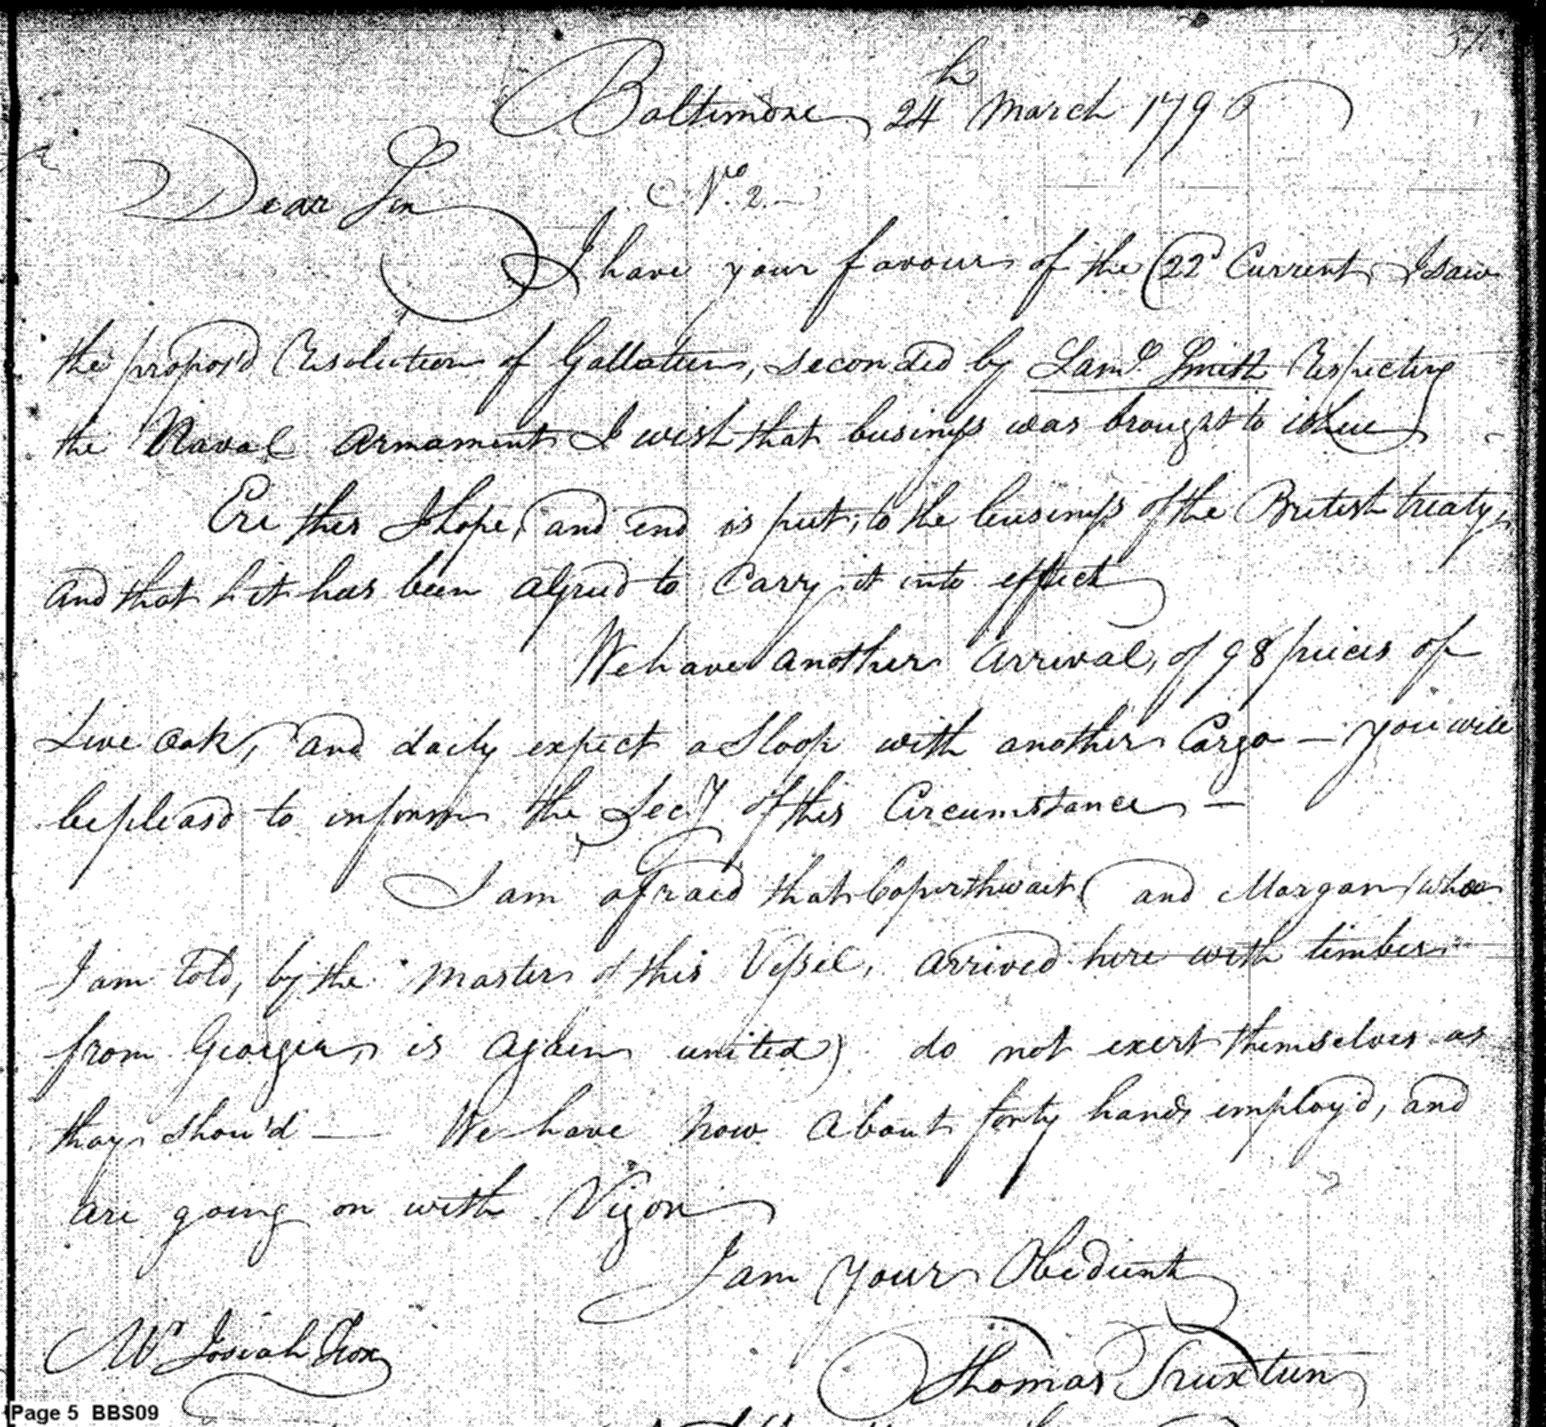 Baltimore 24th March 1796
Dear Sir No. 2.
I have your favour of the 22d Current, I saw
the propos'd Resolution of Gallatin, seconded by Saml. Smith Respecting
the Naval Armament I wish that business was brought to issue
Ere this I hope, and end is put, to the business of the British treaty,
and that it has been agreed to Carry it into effect
We have another arrival, of 98 pieces of
Live Oak, and daily expect a Sloop with another Cargo — you will
be pleasd to inform the Secy of this Circumstance —
I am afraid that Coperthwait (and Morgan who
I am told, by the Master of this Vessel, arrived here with timber
from Georgia, is again united) do not exert themselves as
thay shou'd — We have now about forty hands employ'd, and
are going on with Vigor
I am your Obedient
Mr Josiah Fox
Thomas Truxtun
Page 5 BBS09